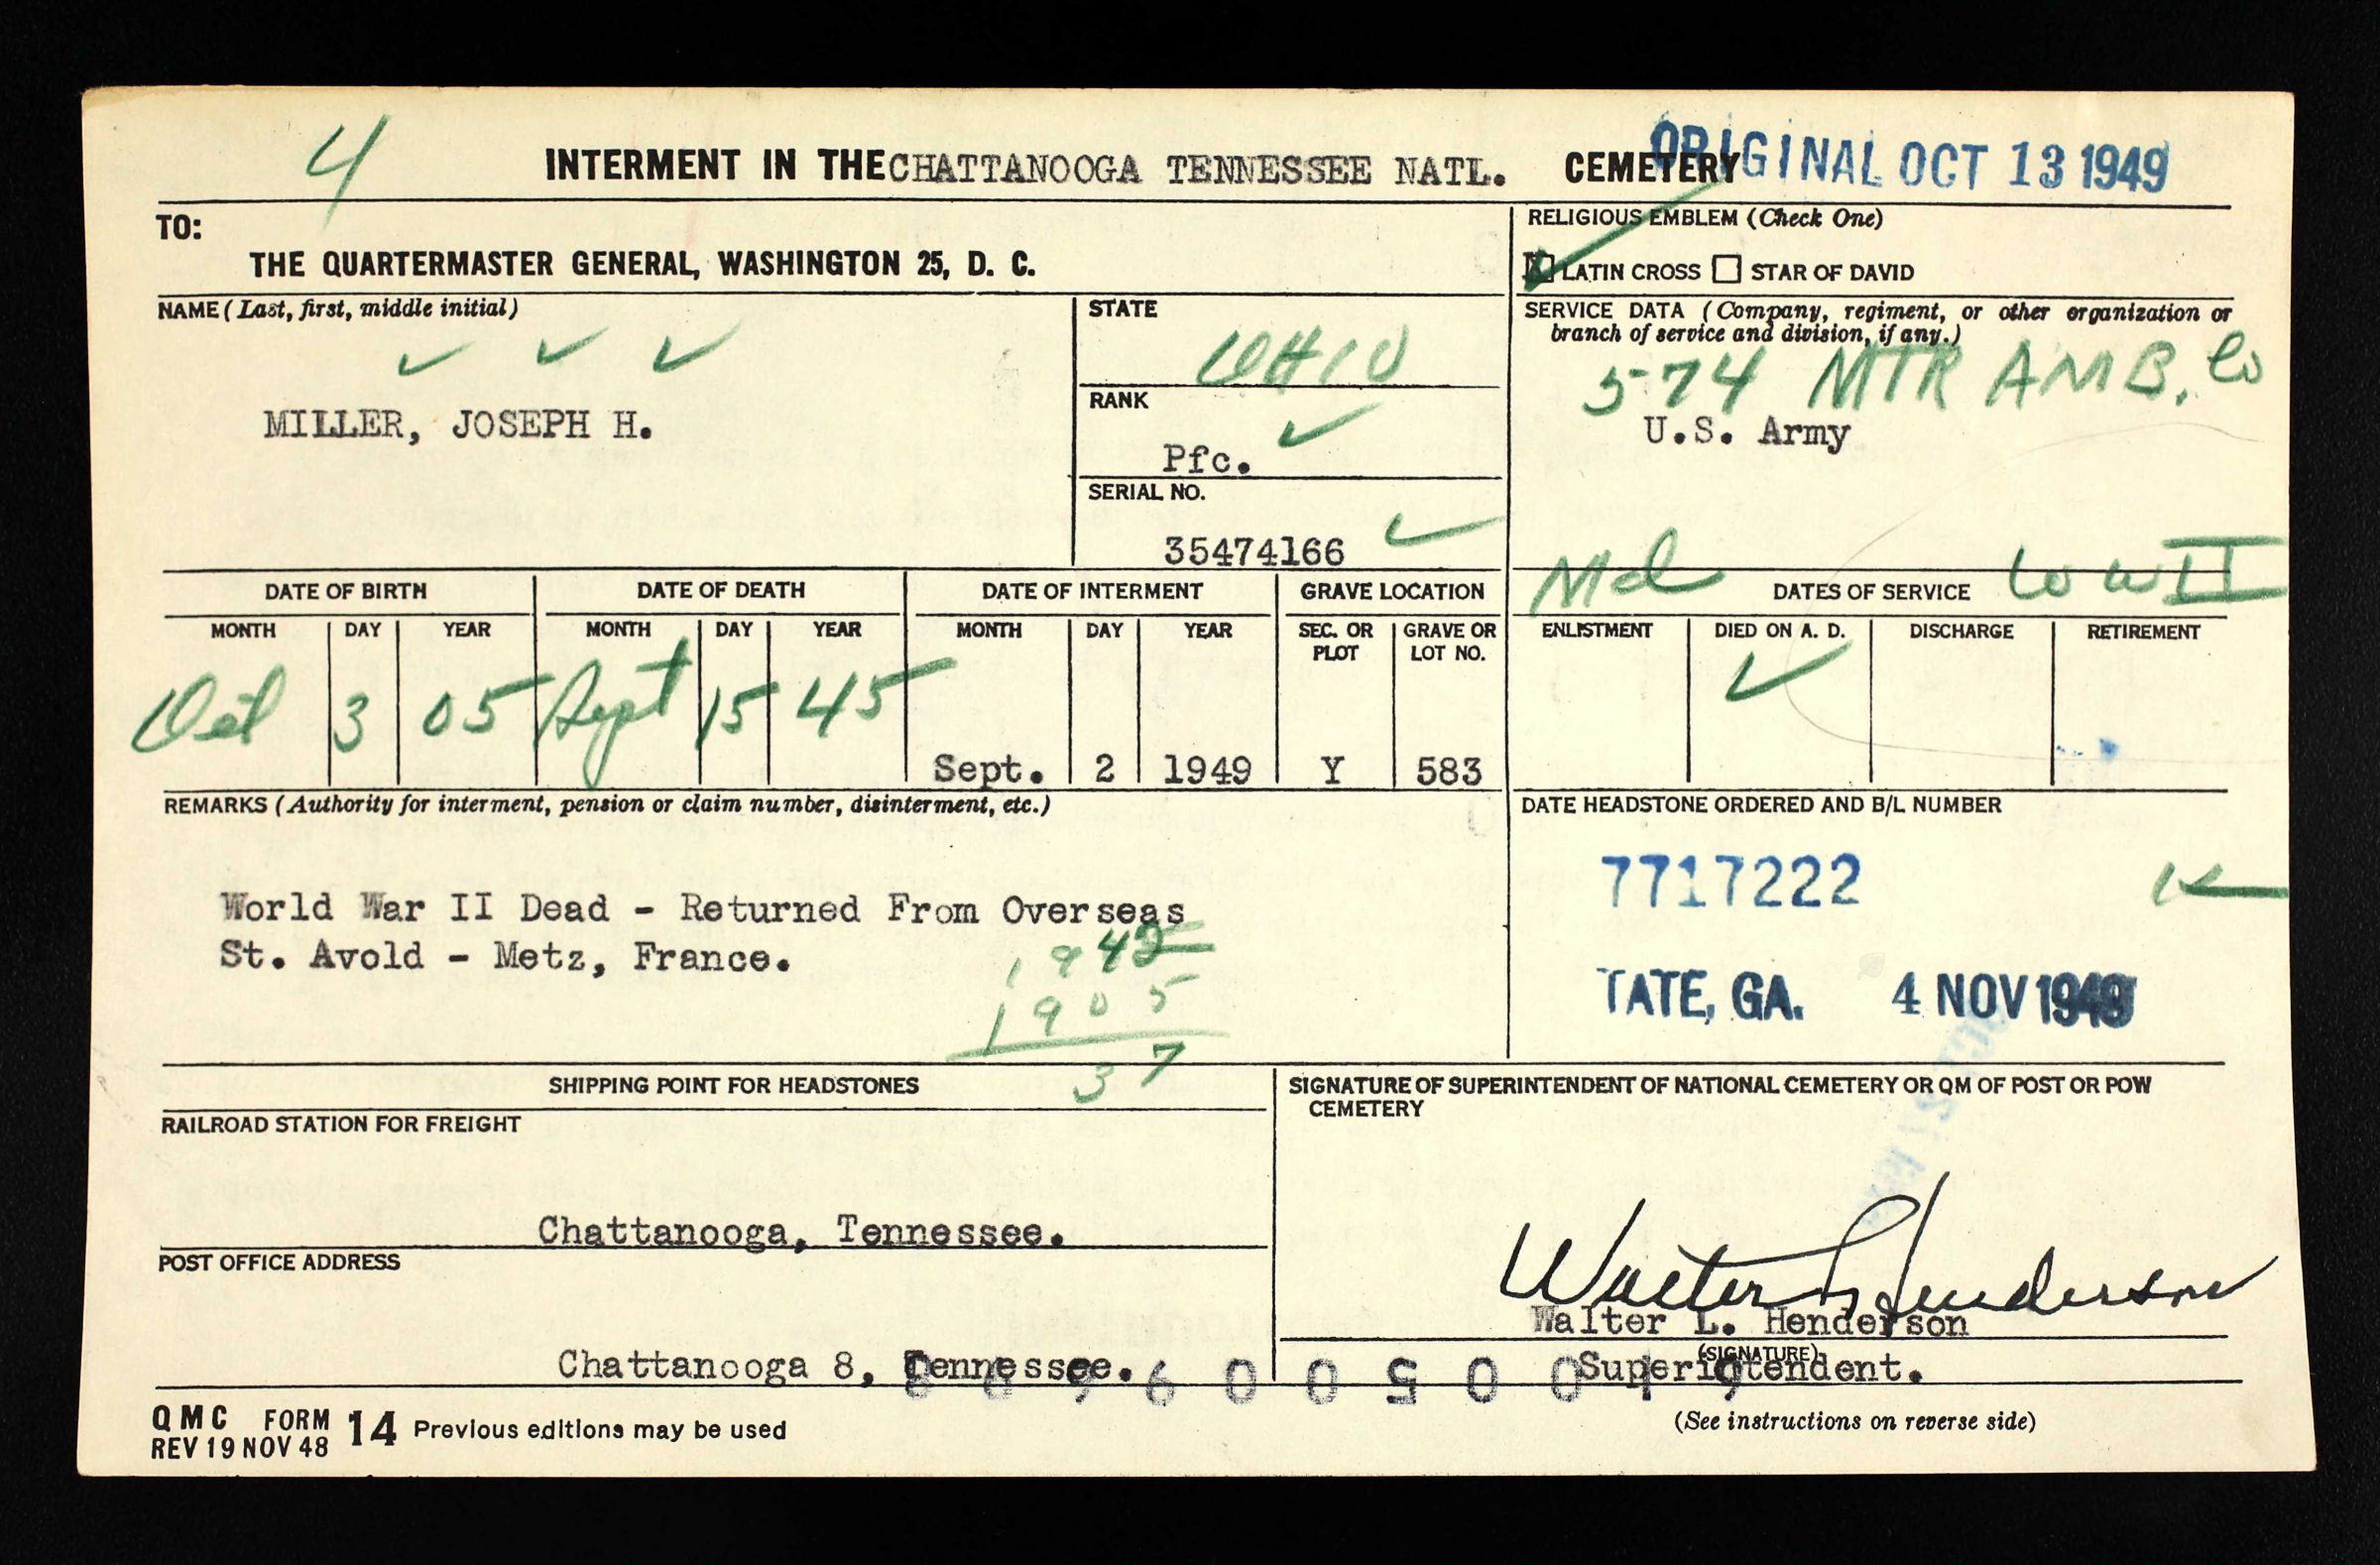 4
INTERMENT IN THE CHATTANOOGA TENNESSEE NATL. CEMETERY
ORIGINAL OCT 13 1949
TO:
THE QUARTERMASTER GENERAL, WASHINGTON 25, D. C.
RELIGIOUS EMBLEM (Check One)
LATIN CROSS STAR OF DAVID
NAME (Last, first, middle initial)
MILLER, JOSEPH H.
STATE
OHIO
RANK
Pfc.
SERIAL NO.
35474166
SERVICE DATA (Company, regiment, or other organization or
branch of service and division, if any.)
574 MTR AMB. Co
U.S. Army
DATE OF BIRTH DATE OF DEATH DATE OF INTERMENT GRAVE LOCATION
MONTH DAY YEAR MONTH DAY YEAR MONTH DAY YEAR SEC. OR PLOT GRAVE OR LOT NO.
Oct 3 05 Sept 15 45 Sept. 2 1949 Y 583
Md DATES OF SERVICE WW II
ENLISTMENT DIED ON A. D. DISCHARGE RETIREMENT
REMARKS (Authority for interment, pension or claim number, disinterment, etc.)
World War II Dead - Returned From Overseas
St. Avold - Metz, France.
1942
1905
37
DATE HEADSTONE ORDERED AND B/L NUMBER
7717222
TATE, GA. 4 NOV 1949
SHIPPING POINT FOR HEADSTONES
RAILROAD STATION FOR FREIGHT
Chattanooga, Tennessee.
POST OFFICE ADDRESS
Chattanooga 8, Tennessee.
SIGNATURE OF SUPERINTENDENT OF NATIONAL CEMETERY OR QM OF POST OR POW
CEMETERY
Walter L Henderson
Walter L. Henderson
(SIGNATURE)
Superintendent.
QMC FORM 14 Previous editions may be used
REV 19 NOV 48
(See instructions on reverse side)